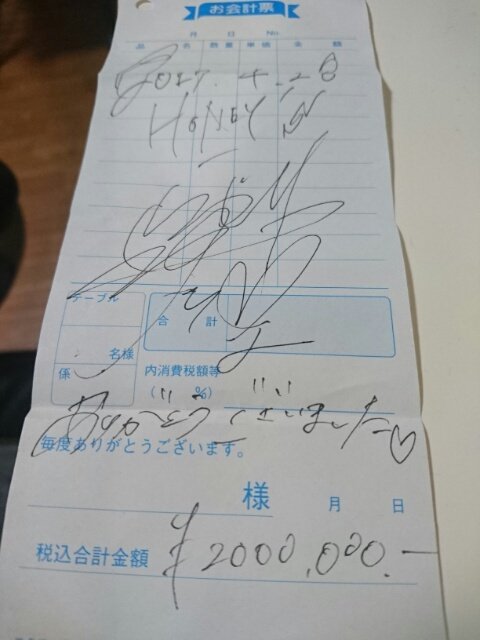 お会計票
月 日 No.
品 名 数量 単価 金 額
2017.4.28
HONEY
テーブル
名様
係
合 計
内消費税額等
( %)
ありがとうございました♡
毎度ありがとうございます。
様 月 日
税込合計金額 ¥2000,000.-